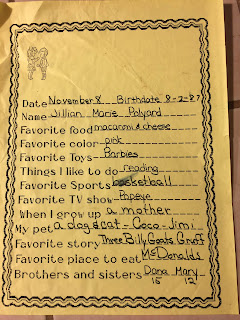 Date November 8 Birthdate 8-2-87
Name Jillian Marie Polyard
Favorite food macaroni & cheese
Favorite color pink
Favorite Toys Barbies
Things I like to do reading
Favorite Sports basketball
Favorite TV show Popeye
When I grow up a mother
My pet a dog & cat - Coco - Jimi
Favorite story Three Billy Goats Gruff
Favorite place to eat McDonalds
Brothers and sisters Dana Mary
15 12